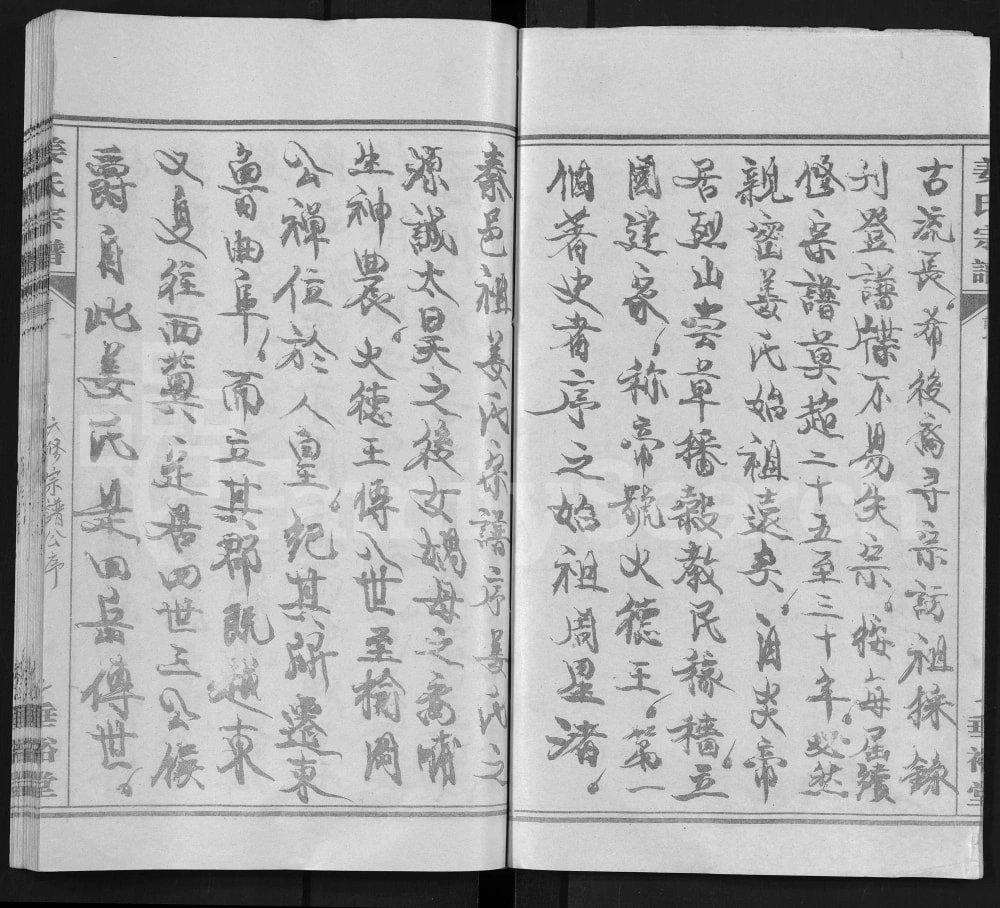 姜氏宗譜
垂裕堂
古流長希後裔寻宗訪祖採錄
刊登譜牒不易失宗按每届續
修宗譜莫超二十五至三十年必然
親密姜氏始祖遠矣自炎帝
居烈山尝草播穀教民稼穡立
國建家称帝號火德王第一
個著史者序之始祖周星渚
秦邑祖姜氏宗譜序姜氏之
源誠太昊之後女媧母之裔
生神農火德王傅八世至榆罔
公禅位於人皇纪其所遷東
魯曲阜而立其郡既
又复往西冀定居四世三公侯
爵自此姜氏是四岳傅世
姜氏宗譜
六修宗譜公序
垂裕堂
FamilySearch